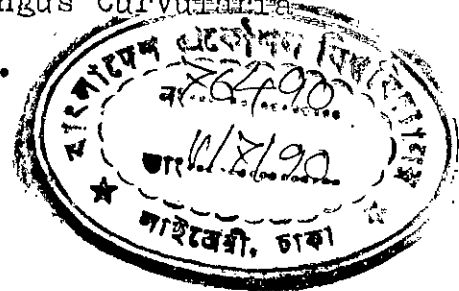 ngus Curvularia
বাংলাদেশ প্রকৌশল বিশ্ববিদ্যালয়
নং 76490
তাং
লাইব্রেরী, ঢাকা